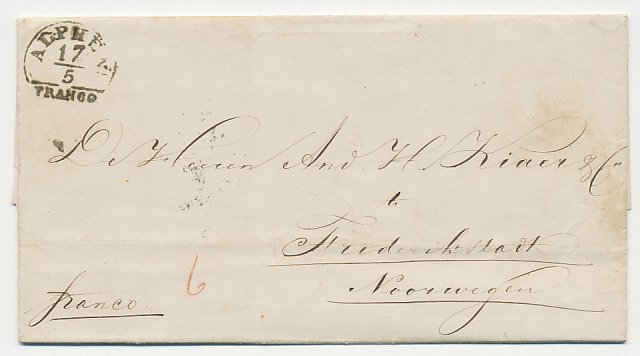 ALPHEN
17
5
FRANCO
De Heeren And. H. Kiaer & Co
te
Frederikstadt
Noorwegen
6
franco